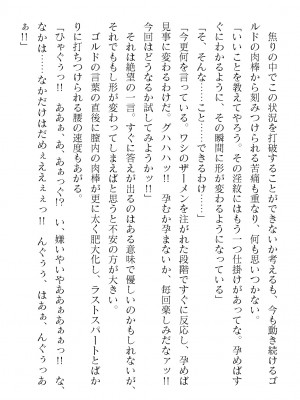 焦りの中でこの状況を打破することができないか考えるも、今も動き続けるゴ
ルドの肉棒から刻みつけられる苦痛も重なり、何も思いつかない。
「いいことを教えてやろう。その淫紋にはもう一つ仕掛けがあってな。孕めばす
ぐにわかるように、その瞬間に形が変わるようになっている」
「そ、そんな……こと……できるわけ……」
「今更何を言っている。ワシのザーメンを注がれた段階ですぐに反応し、孕めば
見事に変わるわけだ。グハハハッ!! 孕むか孕まないか、毎回楽しみだなァッ!!
今回はどうなるか試してみようかッ!!」
それは絶望の一言。すぐに答えが出るのはある意味で優しいのかもしれないが、
それでももし形が変わってしまえばと思うと不安の方が大きい。
ゴルドの言葉の直後に膣内の肉棒が更に太く肥大化し、ラストスパートとばか
りに打ちつけられる腰の速度もあがる。
「ひゃぐぅっ!! ああぁ、あぁっぐ!? い、嫌いやいやああぁあぁぁっ!! な、
なかは……なかだけはだめぇええぇぇっ!! んぐぅっ、はあぁ、んぐぅうっあ
ぁ!!